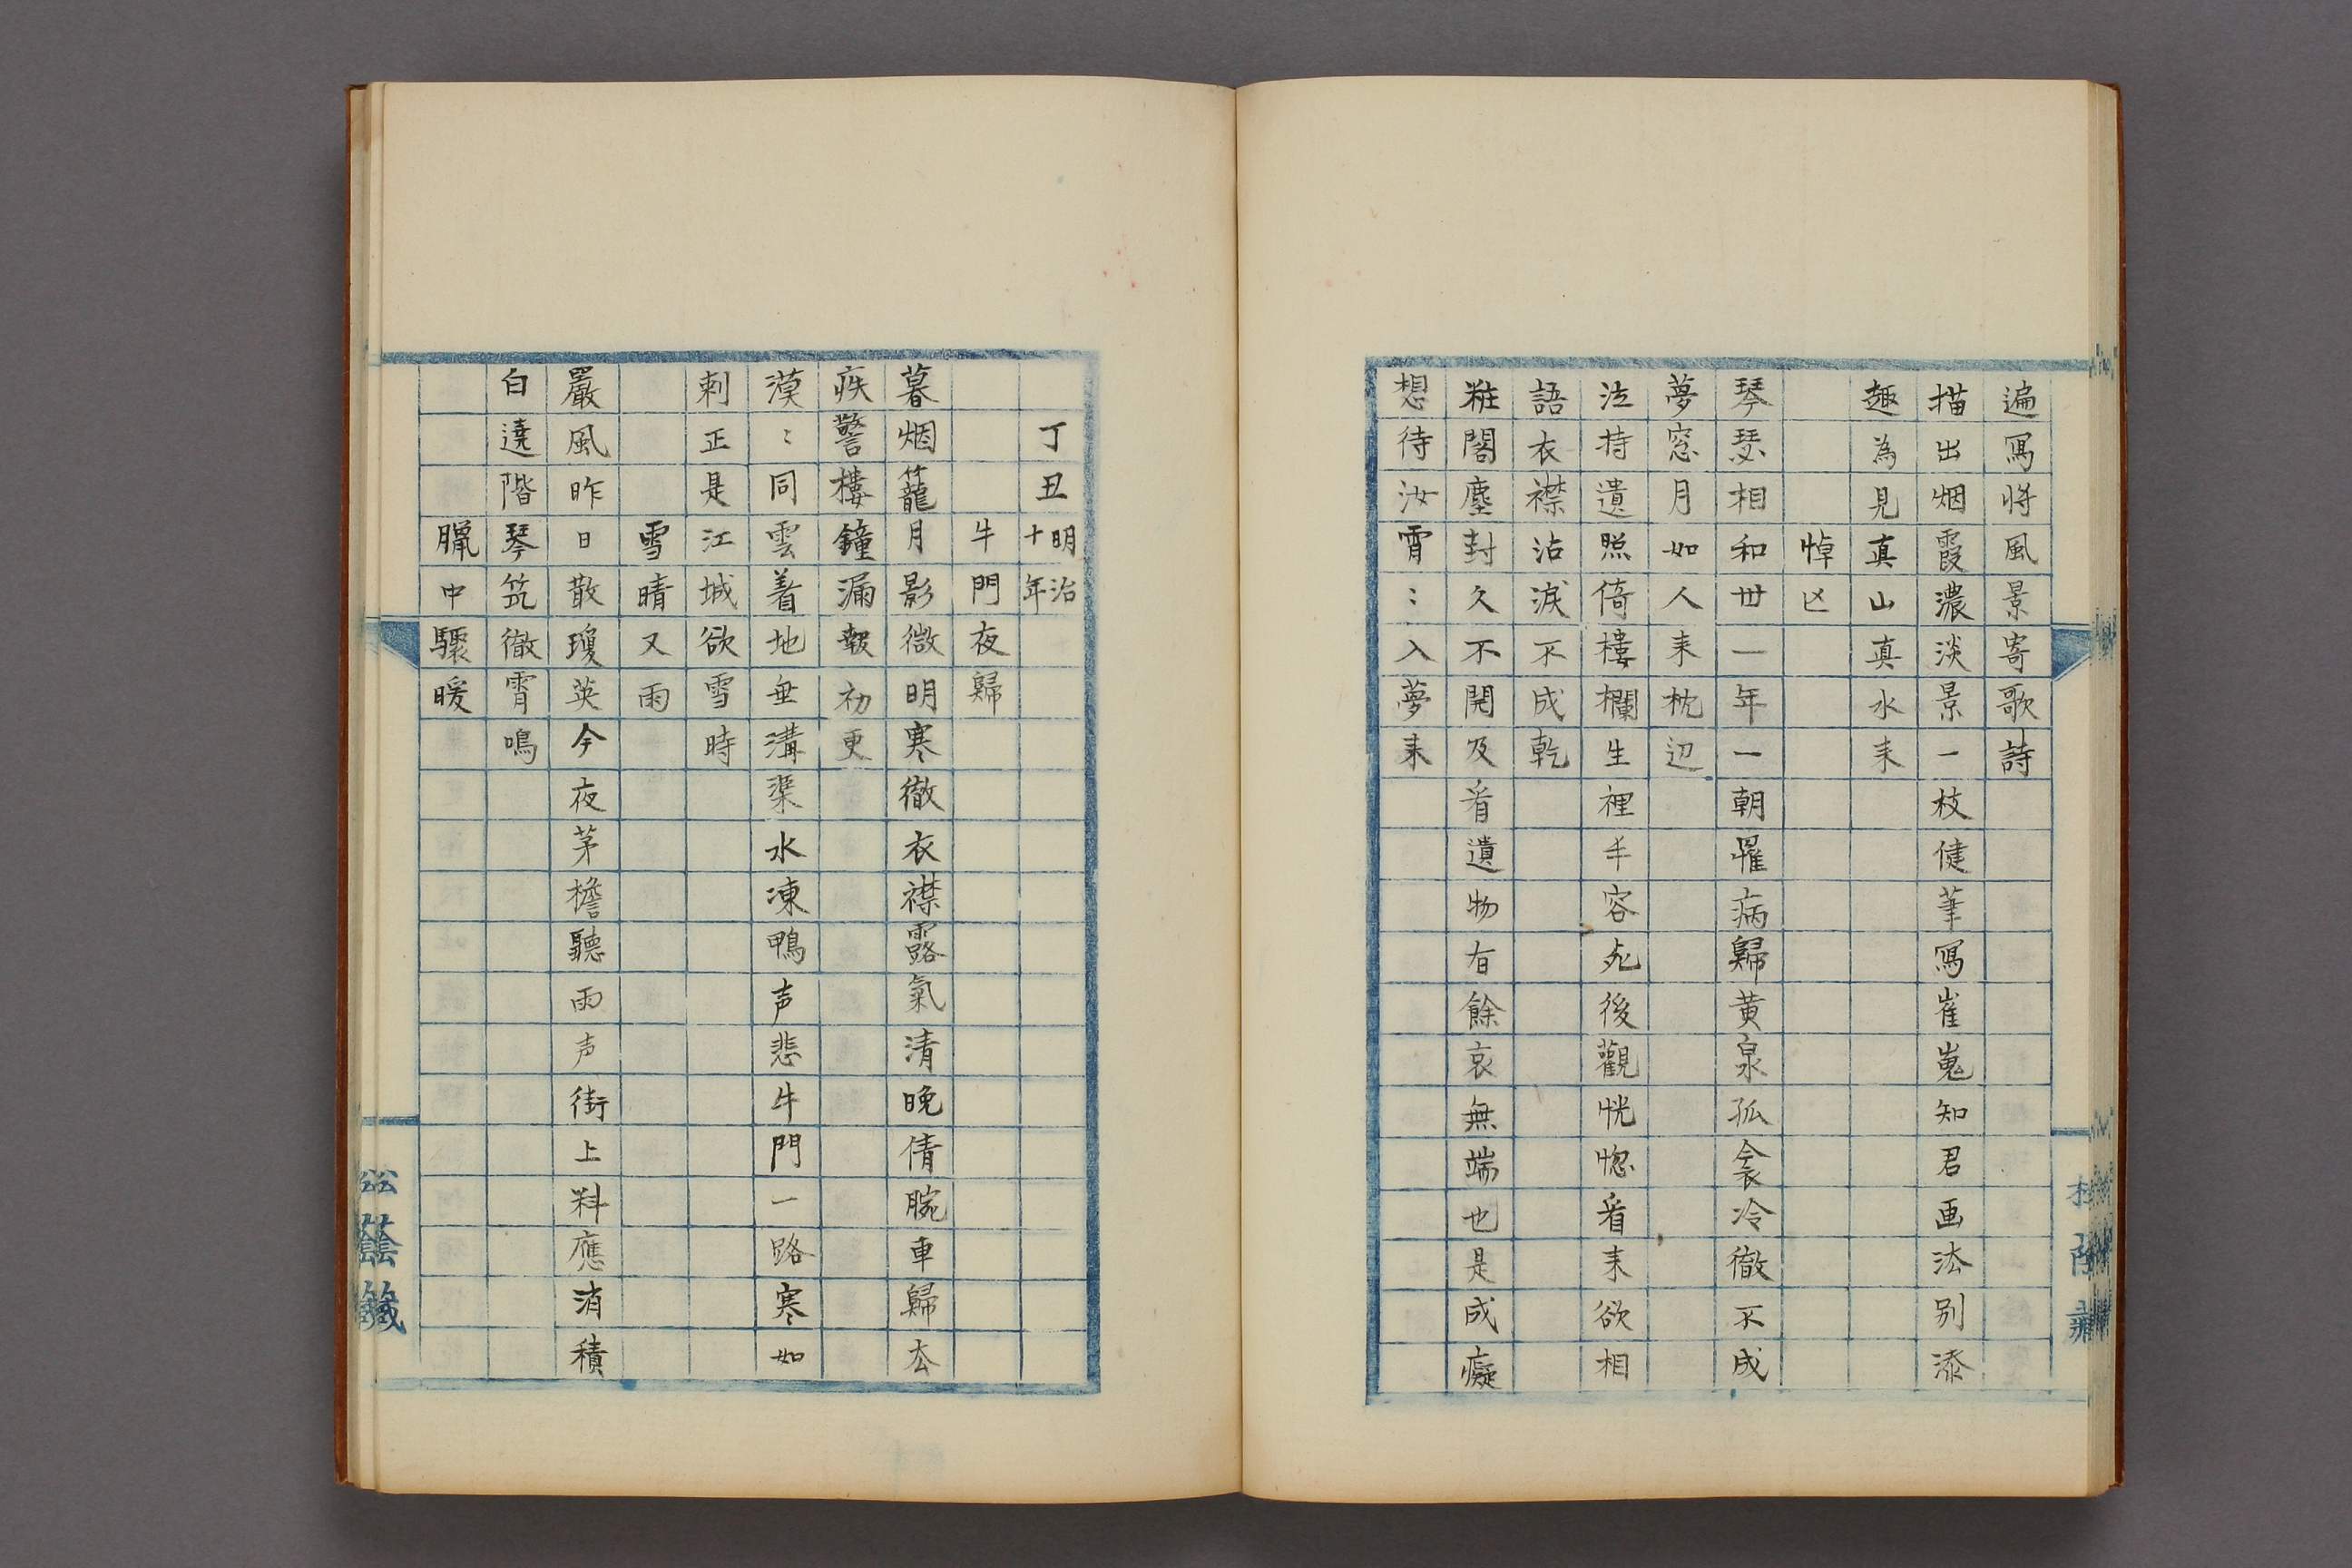 遍寫将風景寄歌詩
描出烟霞濃淡景一枝健筆寫崔嵬知君画法别添
趣為見真山真水来
悼亡
琴瑟相和丗一年一朝罹病歸黄泉孤衾冷徹不成
夢窓月如人来枕辺
泣持遺照倚樓欄生裡半容死後觀恍惚看来欲相
語衣襟沾淚不成乾
粧閣塵封久不開及看遺物有餘哀無端也是成癡
想待汝宵〻入夢来
丁丑明治十年
牛門夜歸
暮烟籠月影微明寒徹衣襟露氣清晚倩腕車歸去
疾警樓鐘漏報初更
漠〻同雲着地垂溝渠水凍鴨声悲牛門一路寒如
刺正是江城欲雪時
雪晴又雨
嚴風昨日散瓊英今夜茅檐聽雨声街上料應消積
白遶階琴筑徹宵鳴
臘中驟暖